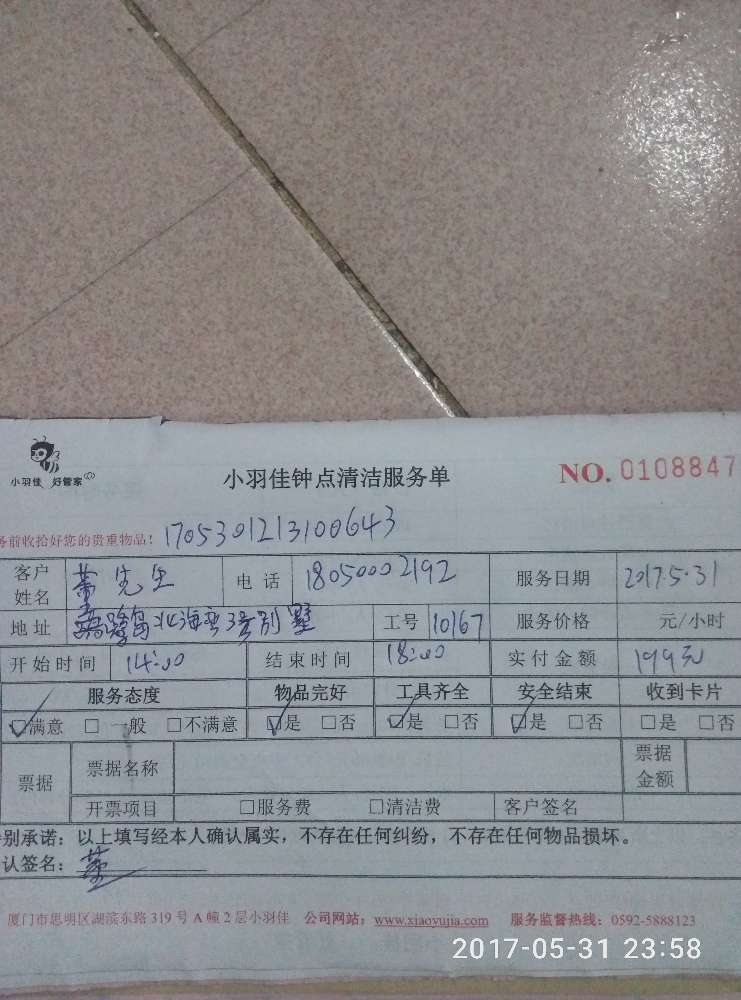 小羽佳 好管家
小羽佳钟点清洁服务单
NO. 0108847
务前收拾好您的贵重物品! 1705301213100643
客户姓名 董先生 电话 18050002192 服务日期 2017.5.31
地址 北海湾3号别墅 工号 10167 服务价格 元/小时
开始时间 14:00 结束时间 18:00 实付金额 199元
服务态度 物品完好 工具齐全 安全结束 收到卡片
☑满意 □一般 □不满意 ☑是 □否 ☑是 □否 ☑是 □否 □是 □否
票据 票据名称 票据金额
开票项目 □服务费 □清洁费 客户签名
别承诺:以上填写经本人确认属实,不存在任何纠纷,不存在任何物品损坏。
认签名: 董
厦门市思明区湖滨东路 319 号 A 幢 2 层小羽佳 公司网站: www.xiaoyujia.com 服务监督热线: 0592-5888123
2017-05-31 23:58